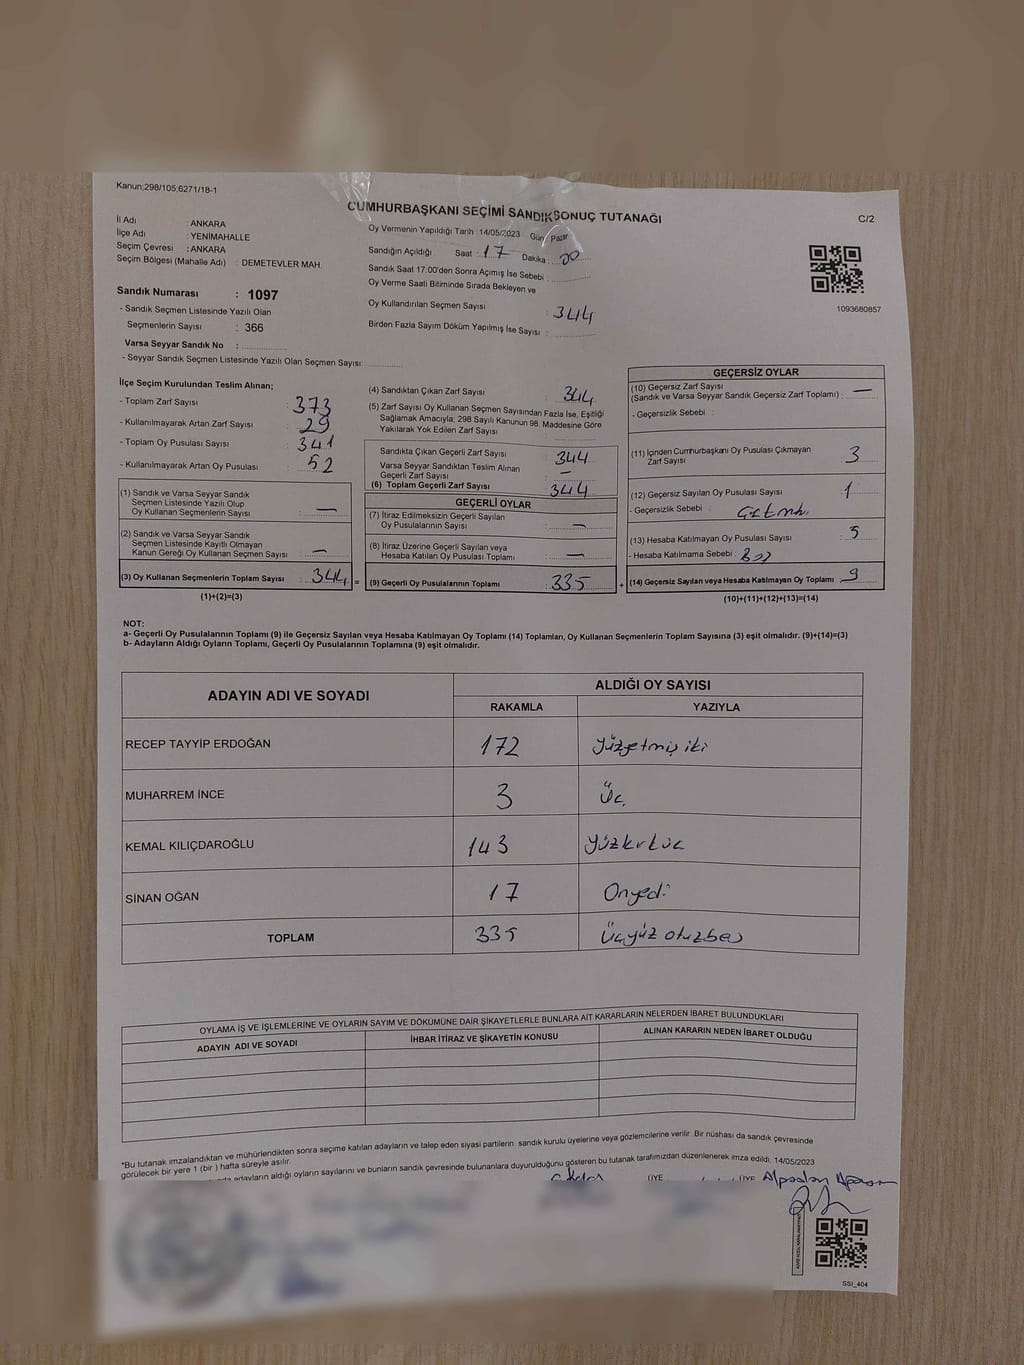 Kanun;298/105;6271/18-1
CUMHURBAŞKANI SEÇİMİ SANDIK SONUÇ TUTANAĞI
C/2
İl Adı : ANKARA
İlçe Adı : YENİMAHALLE
Seçim Çevresi : ANKARA
Seçim Bölgesi (Mahalle Adı) : DEMETEVLER MAH.
Sandık Numarası : 1097
- Sandık Seçmen Listesinde Yazılı Olan
Seçmenlerin Sayısı : 366
Varsa Seyyar Sandık No :
- Seyyar Sandık Seçmen Listesinde Yazılı Olan Seçmen Sayısı:
Oy Vermenin Yapıldığı Tarih :14/05/2023 Gün Pazar
Sandığın Açıldığı Saat : 17 Dakika : 00
Sandık Saat 17:00'den Sonra Açımış İse Sebebi :
Oy Verme Saati Bitiminde Sırada Bekleyen ve
Oy Kullandırılan Seçmen Sayısı : 344
Birden Fazla Sayım Döküm Yapılmış İse Sayısı :
1093680857
İlçe Seçim Kurulundan Teslim Alınan;
- Toplam Zarf Sayısı : 373
- Kullanılmayarak Artan Zarf Sayısı : 29
- Toplam Oy Pusulası Sayısı : 341
- Kullanılmayarak Artan Oy Pusulası : 52
(1) Sandık ve Varsa Seyyar Sandık
Seçmen Listesinde Yazılı Olup
Oy Kullanan Seçmenlerin Sayısı : —
(2) Sandık ve Varsa Seyyar Sandık
Seçmen Listesinde Kayıtlı Olmayan
Kanun Gereği Oy Kullanan Seçmen Sayısı : —
(3) Oy Kullanan Seçmenlerin Toplam Sayısı : 344 =
(1)+(2)=(3)
(4) Sandıktan Çıkan Zarf Sayısı : 344
(5) Zarf Sayısı Oy Kullanan Seçmen Sayısından Fazla İse, Eşitliği
Sağlamak Amacıyla; 298 Sayılı Kanunun 98. Maddesine Göre
Yakılarak Yok Edilen Zarf Sayısı :
Sandıkta Çıkan Geçerli Zarf Sayısı : 344
Varsa Seyyar Sandıktan Teslim Alınan
Geçerli Zarf Sayısı : —
(6) Toplam Geçerli Zarf Sayısı : 344
GEÇERLİ OYLAR
(7) İtiraz Edilmeksizin Geçerli Sayılan
Oy Pusulalarının Sayısı : —
(8) İtiraz Üzerine Geçerli Sayılan veya
Hesaba Katılan Oy Pusulası Toplamı : —
(9) Geçerli Oy Pusulalarının Toplamı : 335 +
GEÇERSİZ OYLAR
(10) Geçersiz Zarf Sayısı
(Sandık ve Varsa Seyyar Sandık Geçersiz Zarf Toplamı) : —
- Geçersizlik Sebebi :
(11) İçinden Cumhurbaşkanı Oy Pusulası Çıkmayan
Zarf Sayısı : 3
(12) Geçersiz Sayılan Oy Pusulası Sayısı : 1
- Geçersizlik Sebebi :
(13) Hesaba Katılmayan Oy Pusulası Sayısı : 5
- Hesaba Katılmama Sebebi : Boş
(14) Geçersiz Sayılan veya Hesaba Katılmayan Oy Toplamı : 9
(10)+(11)+(12)+(13)=(14)
NOT:
a- Geçerli Oy Pusulalarının Toplamı (9) ile Geçersiz Sayılan veya Hesaba Katılmayan Oy Toplamı (14) Toplamları, Oy Kullanan Seçmenlerin Toplam Sayısına (3) eşit olmalıdır. (9)+(14)=(3)
b- Adayların Aldığı Oyların Toplamı, Geçerli Oy Pusulalarının Toplamına (9) eşit olmalıdır.
ADAYIN ADI VE SOYADI
ALDIĞI OY SAYISI
RAKAMLA YAZIYLA
RECEP TAYYİP ERDOĞAN 172 Yüzyetmiş iki
MUHARREM İNCE 3 Üç
KEMAL KILIÇDAROĞLU 143 Yüzkırküç
SİNAN OĞAN 17 Onyedi
TOPLAM 335 Üçyüz otuzbeş
OYLAMA İŞ VE İŞLEMLERİNE VE OYLARIN SAYIM VE DÖKÜMÜNE DAİR ŞİKAYETLERLE BUNLARA AİT KARARLARIN NELERDEN İBARET BULUNDUKLARI
ADAYIN ADI VE SOYADI İHBAR İTİRAZ VE ŞİKAYETİN KONUSU ALINAN KARARIN NEDEN İBARET OLDUĞU
*Bu tutanak imzalandıktan ve mühürlendikten sonra seçime katılan adayların ve talep eden siyasi partilerin sandık kurulu üyelerine veya gözlemcilerine verilir .Bir nüshası da sandık çevresinde
görülecek bir yere 1 (bir ) hafta süreyle asılır.
adayların aldığı oyların sayılarını ve bunların sandık çevresinde bulunanlara duyurulduğunu gösteren bu tutanak tarafımızdan düzenlenerek imza edildi. 14/05/2023
ÜYE ÜYE Alpaslan
SSİ_404